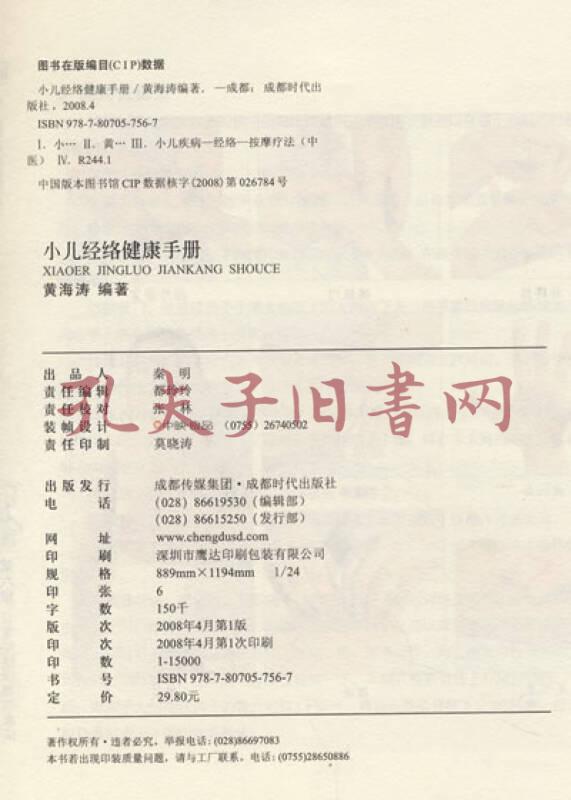 图书在版编目(CIP)数据
小儿经络健康手册/黄海涛编著.—成都:成都时代出
版社,2008.4
ISBN 978-7-80705-756-7
Ⅰ.小… Ⅱ.黄… Ⅲ.小儿疾病—经络—按摩疗法(中
医) Ⅳ.R244.1
中国版本图书馆CIP数据核字(2008)第026784号
小儿经络健康手册
XIAOER JINGLUO JIANKANG SHOUCE
黄海涛 编著
出品人 秦明
责任编辑 都玲玲
责任校对 张
装帧设计 (0755)26740502
责任印制 莫晓涛
孔夫子旧书网
出版发行 成都传媒集团·成都时代出版社
电话 (028)86619530(编辑部)
(028)86615250(发行部)
网址 www.chengdusd.com
印刷 深圳市鹰达印刷包装有限公司
规格 889mm×1194mm 1/24
印张 6
字数 150千
版次 2008年4月第1版
印次 2008年4月第1次印刷
印数 1-15000
书号 ISBN 978-7-80705-756-7
定价 29.80元
著作权所有·违者必究,举报电话:(028)86697083
本书若出现印装质量问题,请与工厂联系,电话:(0755)28650886